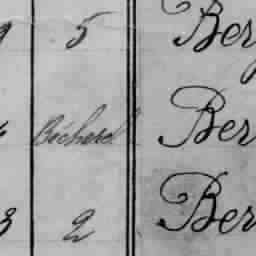 9 5 Ber
Bécherel Ber
3 2 Ber